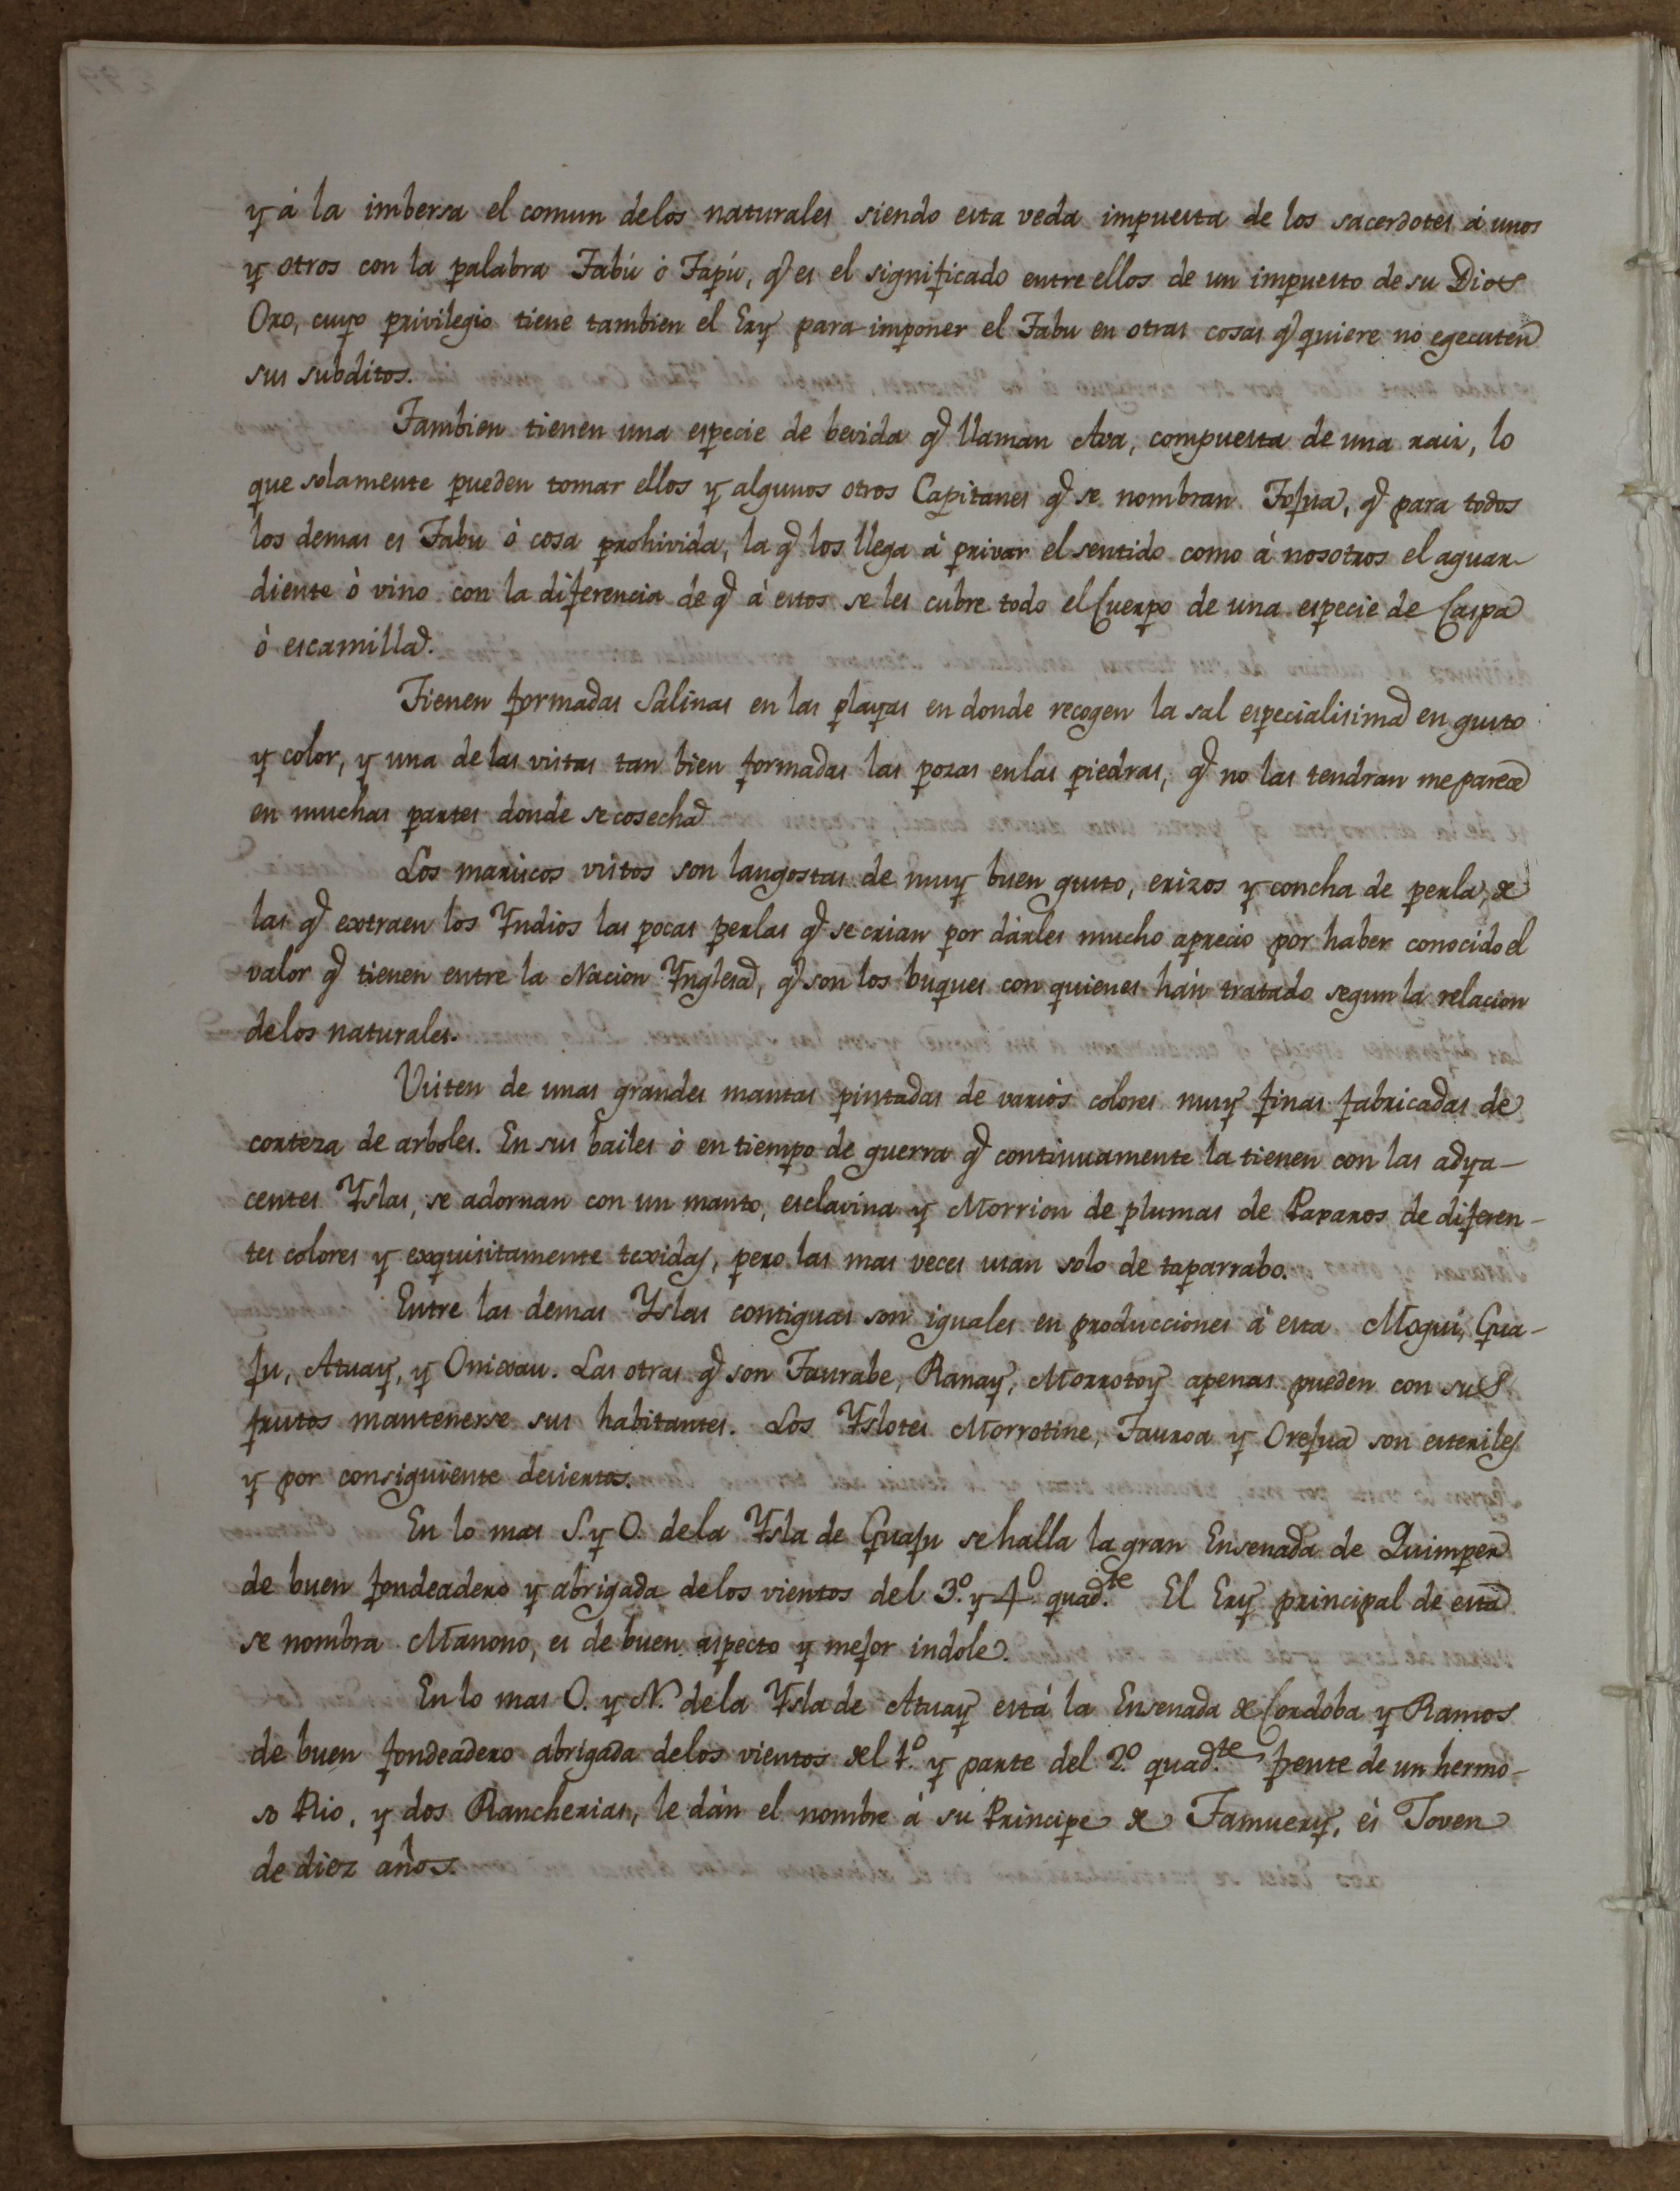 y á la imbersa el comun delos naturales siendo esta veda impuesta de los sacerdotes á unos
y otros con la palabra Tabú ó Tapú, q.e es el significado entre ellos de un impuesto de su Dios
Oro, cuyo privilegio tiene tambien el Ery para imponer el Tabu en otras cosas q.e quiere no egecuten
sus subditos.
Tambien tienen una especie de bevida q.e llaman Ava, compuesta de una raiz, lo
que solamente pueden tomar ellos y algunos otros Capitanes q.e se nombran Tofua, q.e para todos
los demas es Tabu ó cosa prohivida, la q.e los llega á privar el sentido como á nosotros el aguar-
diente ó vino con la diferencia de q.e á estos se les cubre todo el Cuerpo de una especie de Caspa
ó escamilla.
Tienen formadas Salinas en las playas en donde recogen la sal especialisima en gusto
y color, y una de las vistas tan bien formadas las pozas en las piedras, q.e no las tendran me parece
en muchas partes donde se cosecha.
Los mariscos vistos son langostas de muy buen gusto, erizos y concha de perla, de
las q.e extraen los Yndios las pocas perlas q.e se crian por dárles mucho aprecio por haber conocido el
valor q.e tienen entre la Nacion Ynglesa, q.e son los buques con quienes hán tratado segun la relacion
delos naturales.
Visten de unas grandes mantas pintadas de varios colores muy finas fabricadas de
corteza de arboles. En sus bailes ó en tiempo de guerra q.e continuamente la tienen con las adya-
centes Yslas, se adornan con un manto, esclavina y Morrion de plumas de Paxaros de diferen-
tes colores y exquisitamente texidas, pero las mas veces usan solo de taparrabo.
Entre las demas Yslas contiguas son iguales en producciones á esta Mogui, Gua-
ju, Atuay, y Onixau. Las otras q.e son Taurabe, Ranay, Morrotoy apenas pueden con sus
frutos mantenerse sus habitantes. Los Yslotes Morrotine, Tauroa y Orejua son esteriles
y por consiguiente desiertos.
En lo mas S. y O. dela Ysla de Guaju se halla la gran Ensenada de Quimper
de buen fondeadero y abrigada delos vientos del 3.º y 4.º quad.te El Ery principal de esta
se nombra Manono, es de buen aspecto y mejor indole.
En lo mas O. y N. dela Ysla de Atuay está la Ensenada de Cordoba y Ramos
de buen fondeadero abrigada delos vientos del 1.º y parte del 2.º quad.te frente de un hermo-
so Rio, y dos Rancherias, le dán el nombre á su Principe de Tamuery, és Joven
de diez años.